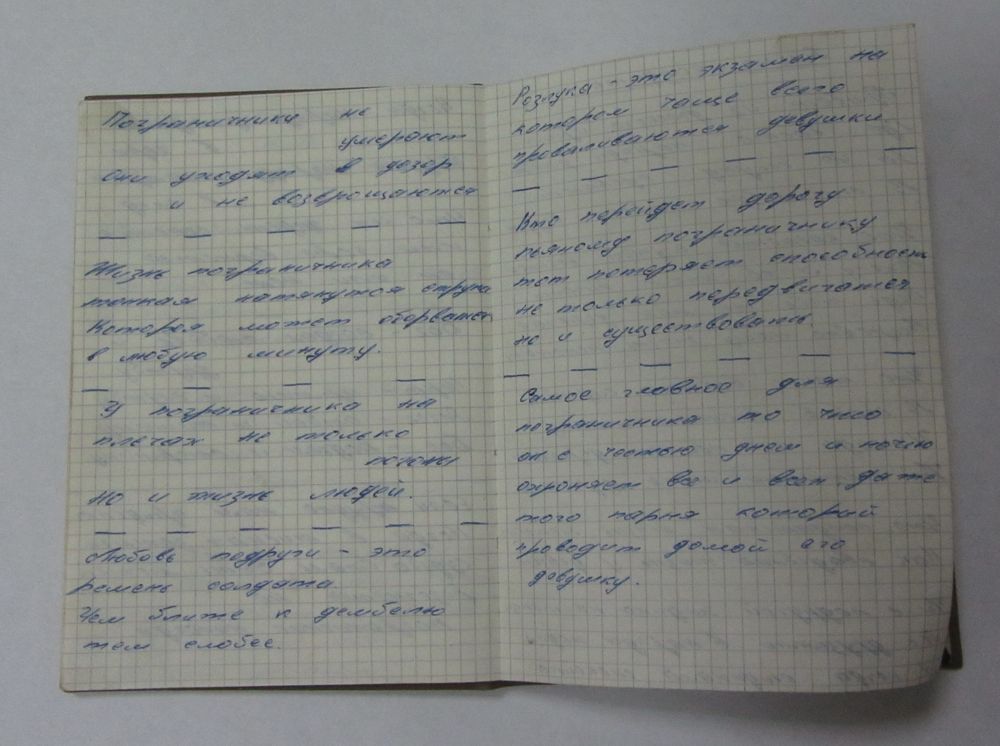 Пограничники не
умерают
они уходят в дозор
и не возврощаются
— — — — —
Жизнь пограничника
тонкая натянутая струна
Которая может оборваться
в любую минуту.
— — — —
У пограничника на
плечах не только
погоны
но и жизнь людей.
— — — — — —
Любовь подруги - это
ремень солдата
Чем ближе к дембелю
тем слабее.
Розлука - это экзамен на
котором чаще всего
проваливаются девушки
— — — — — —
Кто перейдет дорогу
пьяному пограничнику
тот потеряет способность
не только передвигатся
но и существовать.
— — — — — —
Самое главное для
пограничника то что
он с честью днем и ночью
охроняет все и всех даже
того парня который
проводит домой его
девушку.